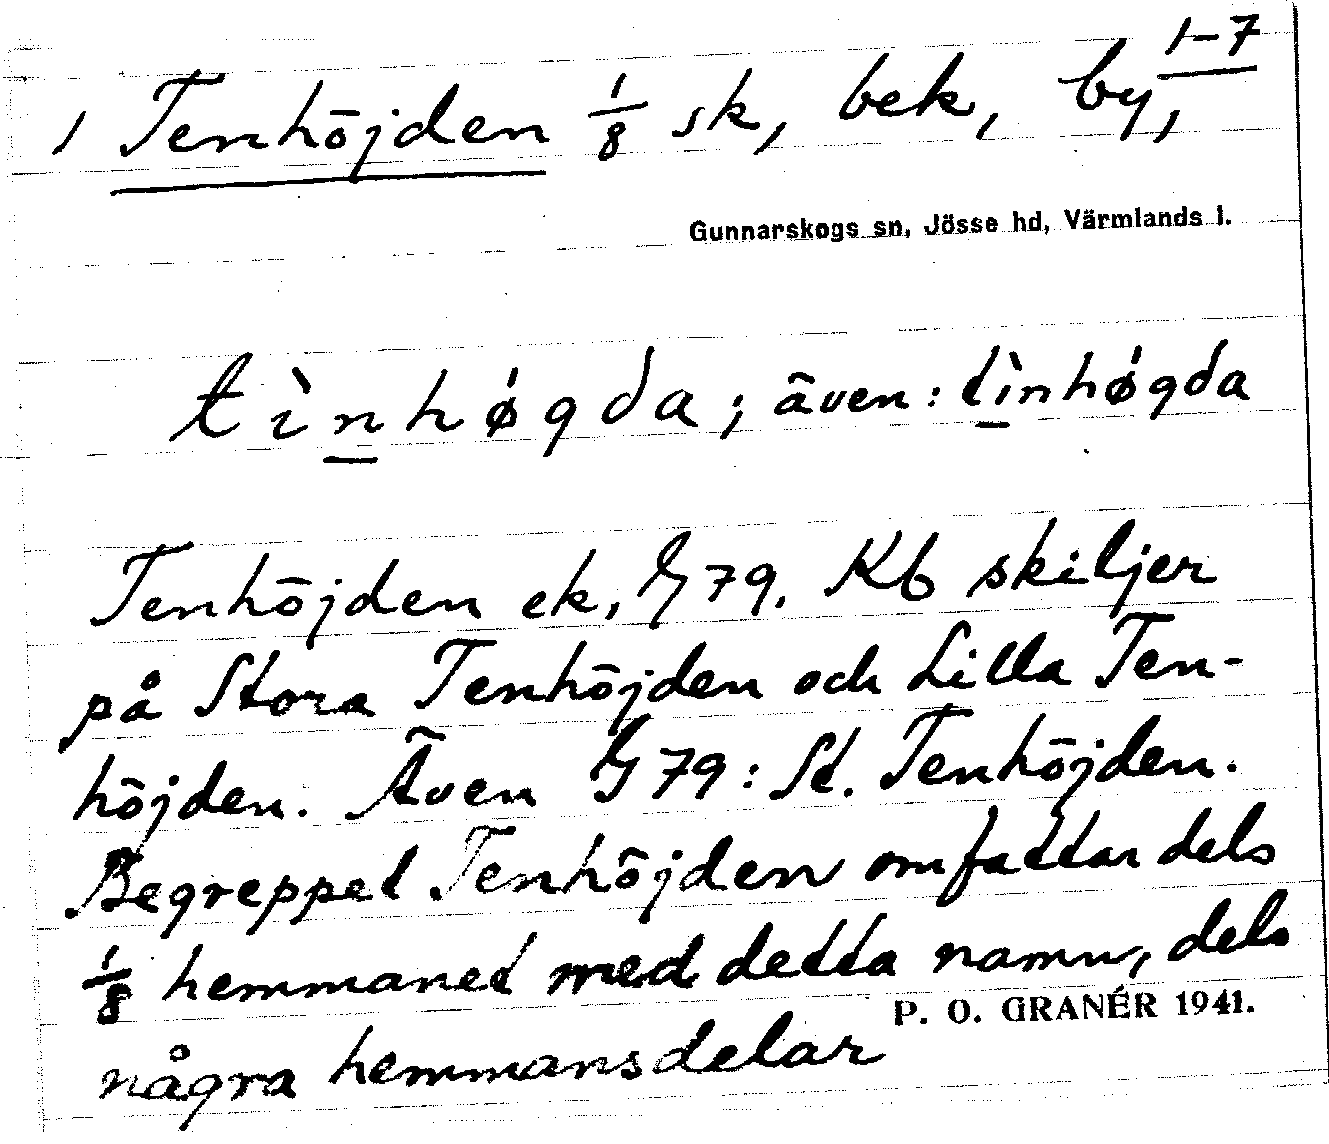 1-7
1 Tenhöjden 1/8 sk, bek, by,
Gunnarskogs sn, Jösse hd, Värmlands l.
tìnhǿgda; även: tìnhǿgda
Tenhöjden ek, G 79. Kb skiljer
på Stora Tenhöjden och Lilla Ten-
höjden. Även G 79: St. Tenhöjden.
Begreppet Tenhöjden omfattar dels
1/8 hemmanet med detta namn, dels
några hemmansdelar
P. O. GRANÉR 1941.